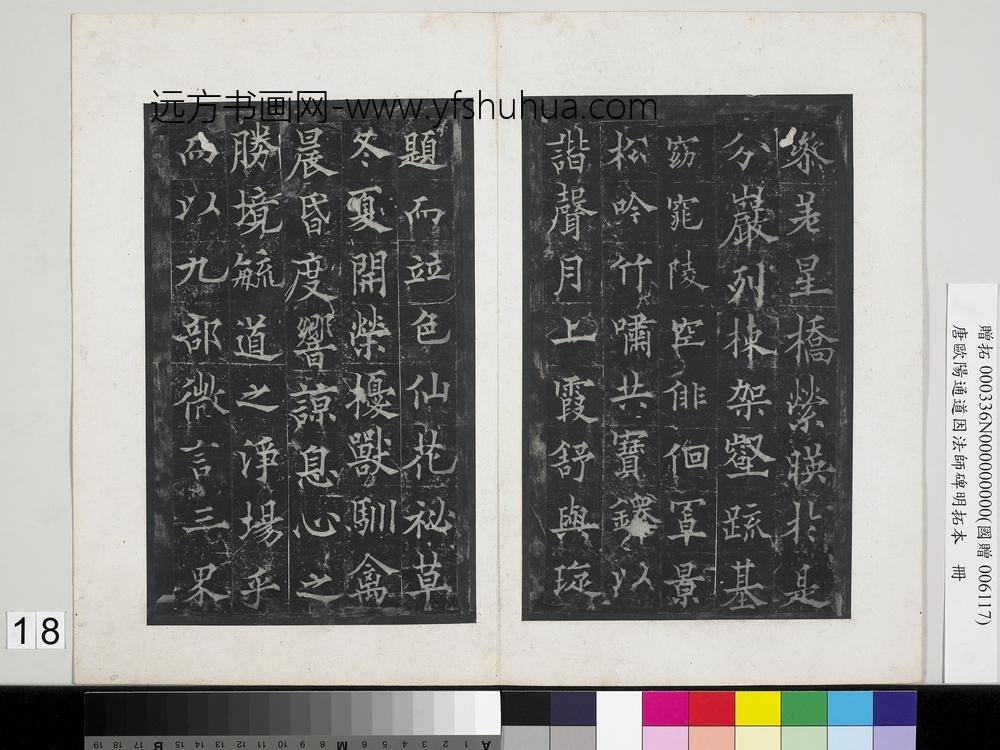 远方书画网-www.yfshuhua.com
叅差星橋縈暎扵是
分巖列棟架壑疏基
窈窕陵空徘徊罩景
松吟竹嘯共寶鐸以
諧聲月上霞舒與琁
題而竝色仙花祕草
冬夏開榮擾獸馴禽
晨昏度響諒息心之
勝境毓道之淨場乎
而以九部微言三果
贈拓 000336N000000000(國贈 006117)
唐歐陽通道因法師碑明拓本 冊
18
A 1 2 3 4 5 6 M 8 9 10 11 12 13 14 15 B 17 18 19